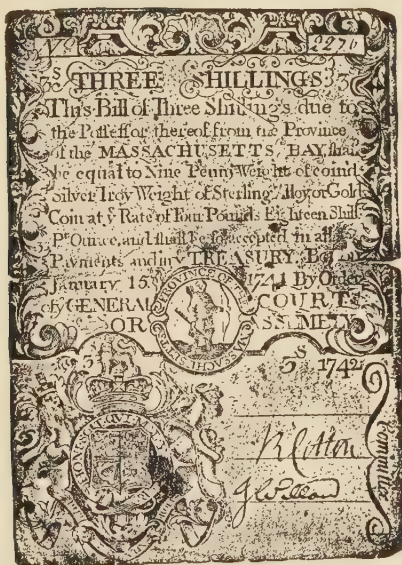 No 2276
3s THREE SHILLINGS 3s
This Bill of Three Shillings due to
the Possessor thereof from the Province
of the MASSACHUSETTS BAY, shall
be equal to Nine Penny Weight of coind
Silver Troy Weight of Sterling Alloy or Gold
Coin at ye Rate of Four Pounds Eighteen Shills
Pr Ounce, and shall be so accepted in all
Payments and in ye TREASURY. Boston
January 15 1741 By Order
of GENERAL COURT
OR ASSEMBLY
PROVINCE OF Y MASSACHU
3 3s 1742
HONI SOIT QUI
R Cotton
Committee